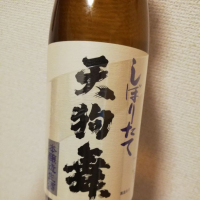 しぼりたて
天狗舞